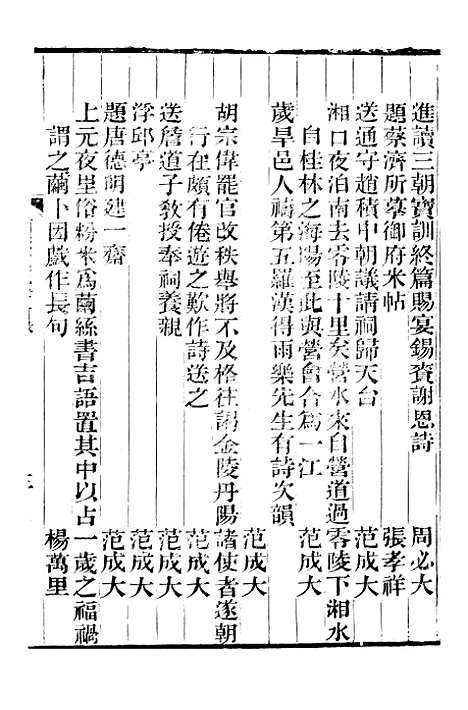 進讀三朝寶訓終篇賜宴錫賚謝恩詩 周必大
題蔡濟所摹御府米帖 張孝祥
送通守趙積中朝議請祠歸天台 范成大
湘口夜泊南去零陵十里矣營水來自營道過零陵下湘水
自桂林之海陽至此與營會合爲一江 范成大
歲旱邑人禱第五羅漢得雨樂先生有詩次韻
范成大
胡宗偉罷官改秩舉將不及格往謁金陵丹陽諸使者遂朝
行在頗有倦遊之歎作詩送之 范成大
送詹道子敎授奉祠養親 范成大
浮邱亭 范成大
題唐德明建一齋 范成大
上元夜里俗粉米爲繭絲書吉語置其中以占一歲之福禍
謂之繭卜因戲作長句 楊萬里